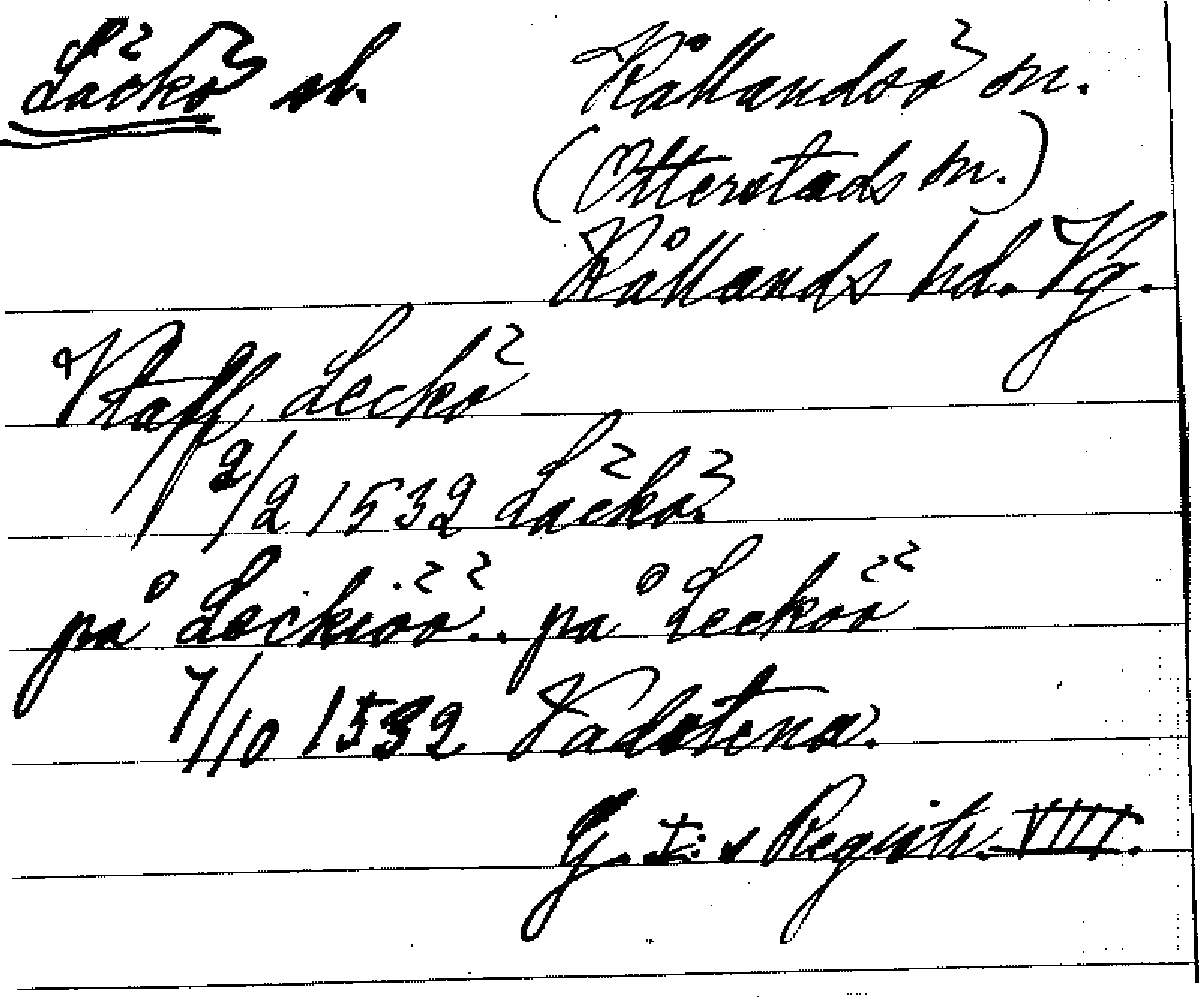 Läckö sl. Kållandsö sn.
(Otterstads sn.)
Kållands hd. Vg.
Vtaff Leckö
2/2 1532 Läckö.
på Leckiöö.. på Lecköö
7/10 1532 Vadstena.
G. I:s Registr. VIII.